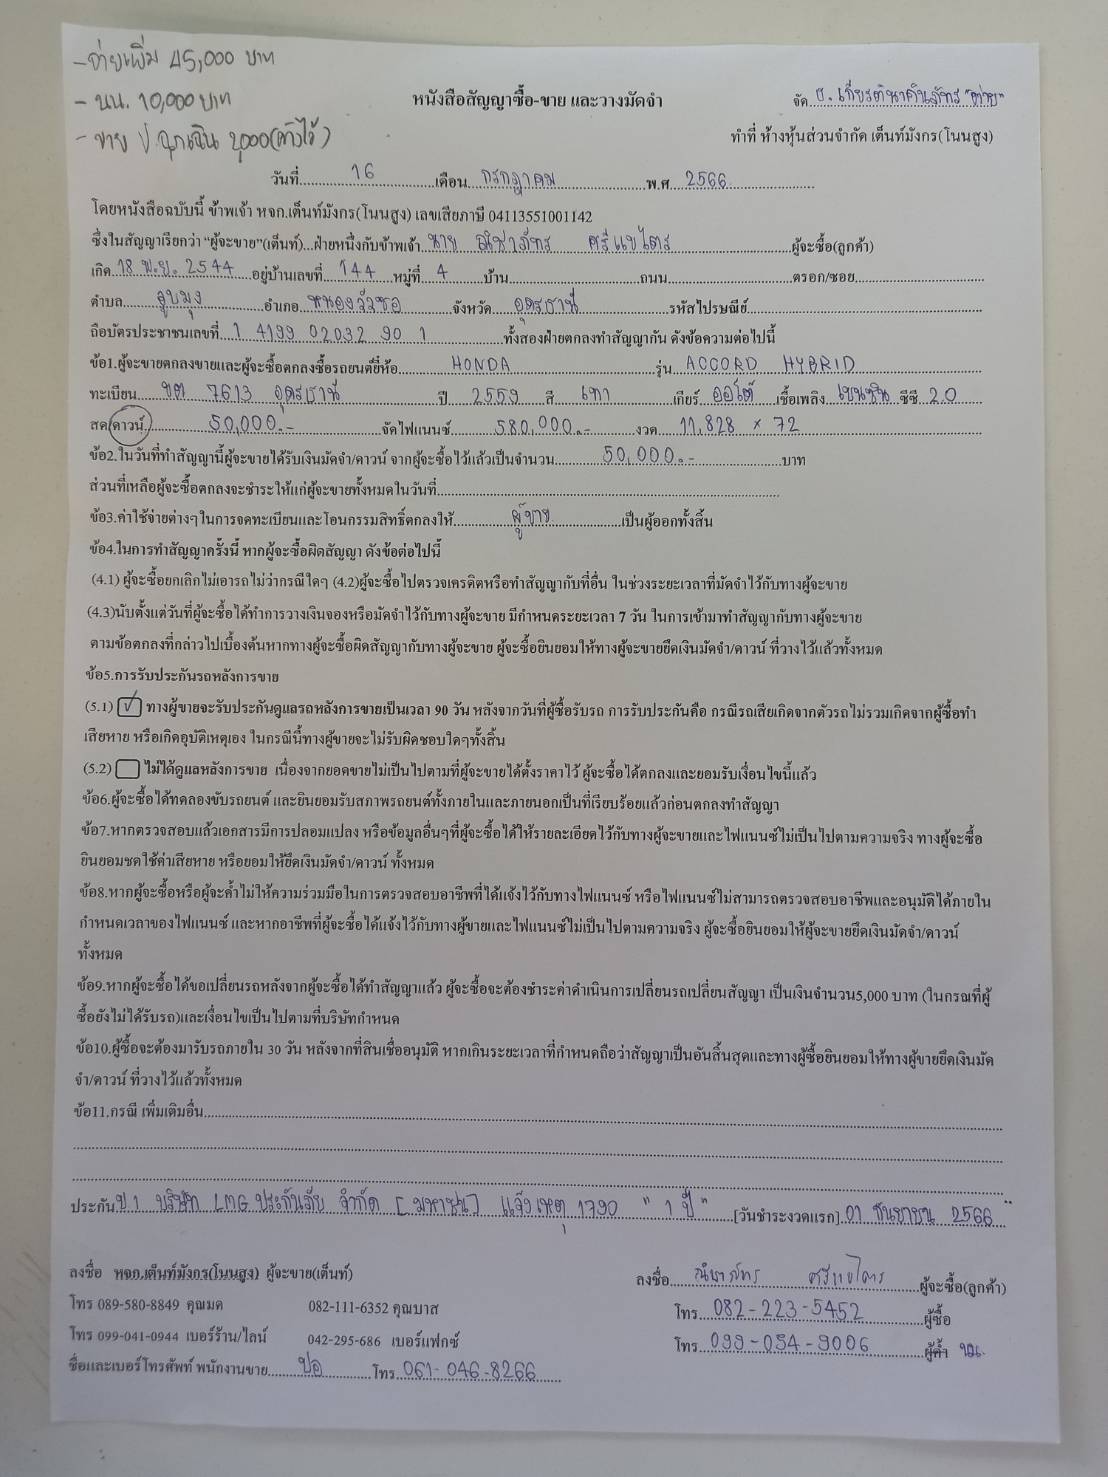 -จ่ายเพิ่ม 45,000 บาท
- นน. 10,000 บาท
- ขาย ป.ฉุกเฉิน 2,000(ค้างไว้)
หนังสือสัญญาซื้อ-ขาย และวางมัดจำ
จัด ธ. เกียรตินาคินภัทร
ทำที่ ห้างหุ้นส่วนจำกัด เต็นท์มังกร(โนนสูง)
วันที่ 16 เดือน กรกฎาคม พ.ศ. 2566
โดยหนังสือฉบับนี้ ข้าพเจ้า หจก.เต็นท์มังกร(โนนสูง) เลขเสียภาษี 04113551001142
ซึ่งในสัญญาเรียกว่า “ผู้จะขาย”(เต็นท์)...ฝ่ายหนึ่งกับข้าพเจ้า นาย ผู้จะซื้อ(ลูกค้า)
เกิด 18 พ.ย. 2544 อยู่บ้านเลขที่ 144 หมู่ที่ 4 บ้าน ถนน ตรอก/ซอย
ตำบล อูบมุง อำเภอ หนองวัวซอ จังหวัด อุดรธานี รหัสไปรษณีย์
ถือบัตรประชาชนเลขที่ 1 4199 02032 90 1 ทั้งสองฝ่ายตกลงทำสัญญากัน ดังข้อความต่อไปนี้
ข้อ1.ผู้จะขายตกลงขายและผู้จะซื้อตกลงซื้อรถยนต์ยี่ห้อ HONDA รุ่น ACCORD HYBRID
ทะเบียน ขต 7613 อุดรธานี ปี 2559 สี เทา เกียร์ ออโต้ เชื้อเพลิง เบนซิน ซีซี 2.0
สด/ดาวน์ 50,000.- จัดไฟแนนซ์ 580,000.- งวด 11,828 x 72
ข้อ2.ในวันที่ทำสัญญานี้ผู้จะขายได้รับเงินมัดจำ/ดาวน์ จากผู้จะซื้อไว้แล้วเป็นจำนวน 50,000.- บาท
ส่วนที่เหลือผู้จะซื้อตกลงจะชำระให้แก่ผู้จะขายทั้งหมดในวันที่
ข้อ3.ค่าใช้จ่ายต่างๆในการจดทะเบียนและโอนกรรมสิทธิ์ตกลงให้ ผู้ขาย เป็นผู้ออกทั้งสิ้น
ข้อ4.ในการทำสัญญาครั้งนี้ หากผู้จะซื้อผิดสัญญา ดังข้อต่อไปนี้
(4.1) ผู้จะซื้อยกเลิกไม่เอารถไม่ว่ากรณีใดๆ (4.2)ผู้จะซื้อไปตรวจเครดิตหรือทำสัญญากับที่อื่น ในช่วงระยะเวลาที่มัดจำไว้กับทางผู้จะขาย
(4.3)นับตั้งแต่วันที่ผู้จะซื้อได้ทำการวางเงินจองหรือมัดจำไว้กับทางผู้จะขาย มีกำหนดระยะเวลา 7 วัน ในการเข้ามาทำสัญญากับทางผู้จะขาย
ตามข้อตกลงที่กล่าวไปเบื้องต้นหากทางผู้จะซื้อผิดสัญญากับทางผู้จะขาย ผู้จะซื้อยินยอมให้ทางผู้จะขายยึดเงินมัดจำ/ดาวน์ ที่วางไว้แล้วทั้งหมด
ข้อ5.การรับประกันรถหลังการขาย
(5.1) ✓ ทางผู้ขายจะรับประกันดูแลรถหลังการขายเป็นเวลา 90 วัน หลังจากวันที่ผู้ซื้อรับรถ การรับประกันคือ กรณีรถเสียเกิดจากตัวรถไม่รวมเกิดจากผู้ซื้อทำ
เสียหาย หรือเกิดอุบัติเหตุเอง ในกรณีนี้ทางผู้ขายจะไม่รับผิดชอบใดๆทั้งสิ้น
(5.2) ไม่ได้ดูแลหลังการขาย เนื่องจากยอดขายไม่เป็นไปตามที่ผู้จะขายได้ตั้งราคาไว้ ผู้จะซื้อได้ตกลงและยอมรับเงื่อนไขนี้แล้ว
ข้อ6.ผู้จะซื้อได้ทดลองขับรถยนต์ และยินยอมรับสภาพรถยนต์ทั้งภายในและภายนอกเป็นที่เรียบร้อยแล้วก่อนตกลงทำสัญญา
ข้อ7.หากตรวจสอบแล้วเอกสารมีการปลอมแปลง หรือข้อมูลอื่นๆที่ผู้จะซื้อได้ให้รายละเอียดไว้กับทางผู้จะขายและไฟแนนซ์ไม่เป็นไปตามความจริง ทางผู้จะซื้อ
ยินยอมชดใช้ค่าเสียหาย หรือยอมให้ยึดเงินมัดจำ/ดาวน์ ทั้งหมด
ข้อ8.หากผู้จะซื้อหรือผู้จะค้ำไม่ให้ความร่วมมือในการตรวจสอบอาชีพที่ได้แจ้งไว้กับทางไฟแนนซ์ หรือไฟแนนซ์ไม่สามารถตรวจสอบอาชีพและอนุมัติได้ภายใน
กำหนดเวลาของไฟแนนซ์ และหากอาชีพที่ผู้จะซื้อได้แจ้งไว้กับทางผู้ขายและไฟแนนซ์ไม่เป็นไปตามความจริง ผู้จะซื้อยินยอมให้ผู้จะขายยึดเงินมัดจำ/ดาวน์
ทั้งหมด
ข้อ9.หากผู้จะซื้อได้ขอเปลี่ยนรถหลังจากผู้จะซื้อได้ทำสัญญาแล้ว ผู้จะซื้อจะต้องชำระค่าดำเนินการเปลี่ยนรถเปลี่ยนสัญญา เป็นเงินจำนวน5,000 บาท (ในกรณที่ผู้
ซื้อยังไม่ได้รับรถ)และเงื่อนไขเป็นไปตามที่บริษัทกำหนด
ข้อ10.ผู้ซื้อจะต้องมารับรถภายใน 30 วัน หลังจากที่สินเชื่ออนุมัติ หากเกินระยะเวลาที่กำหนดถือว่าสัญญาเป็นอันสิ้นสุดและทางผู้ซื้อยินยอมให้ทางผู้ขายยึดเงินมัด
จำ/ดาวน์ ที่วางไว้แล้วทั้งหมด
ข้อ11.กรณี เพิ่มเติมอื่น
ประกัน ป 1 บริษัท LMG ประกันภัย จำกัด [มหาชน] แจ้งเหตุ 1790 " 1 ปี " [วันชำระงวดแรก] 01 กันยายน 2566
ลงชื่อ หจก.เต็นท์มังกร(โนนสูง) ผู้จะขาย(เต็นท์)
ลงชื่อ ผู้จะซื้อ(ลูกค้า)
โทร 089-580-8849 คุณมด 082-111-6352 คุณบาส
โทร 082-223-5452 ผู้ซื้อ
โทร 099-041-0944 เบอร์ร้าน/ไลน์ 042-295-686 เบอร์แฟกซ์
โทร 099-054-9006 ผู้ค้ำ
ชื่อและเบอร์โทรศัพท์ พนักงานขาย ปอ โทร 061-046-8266